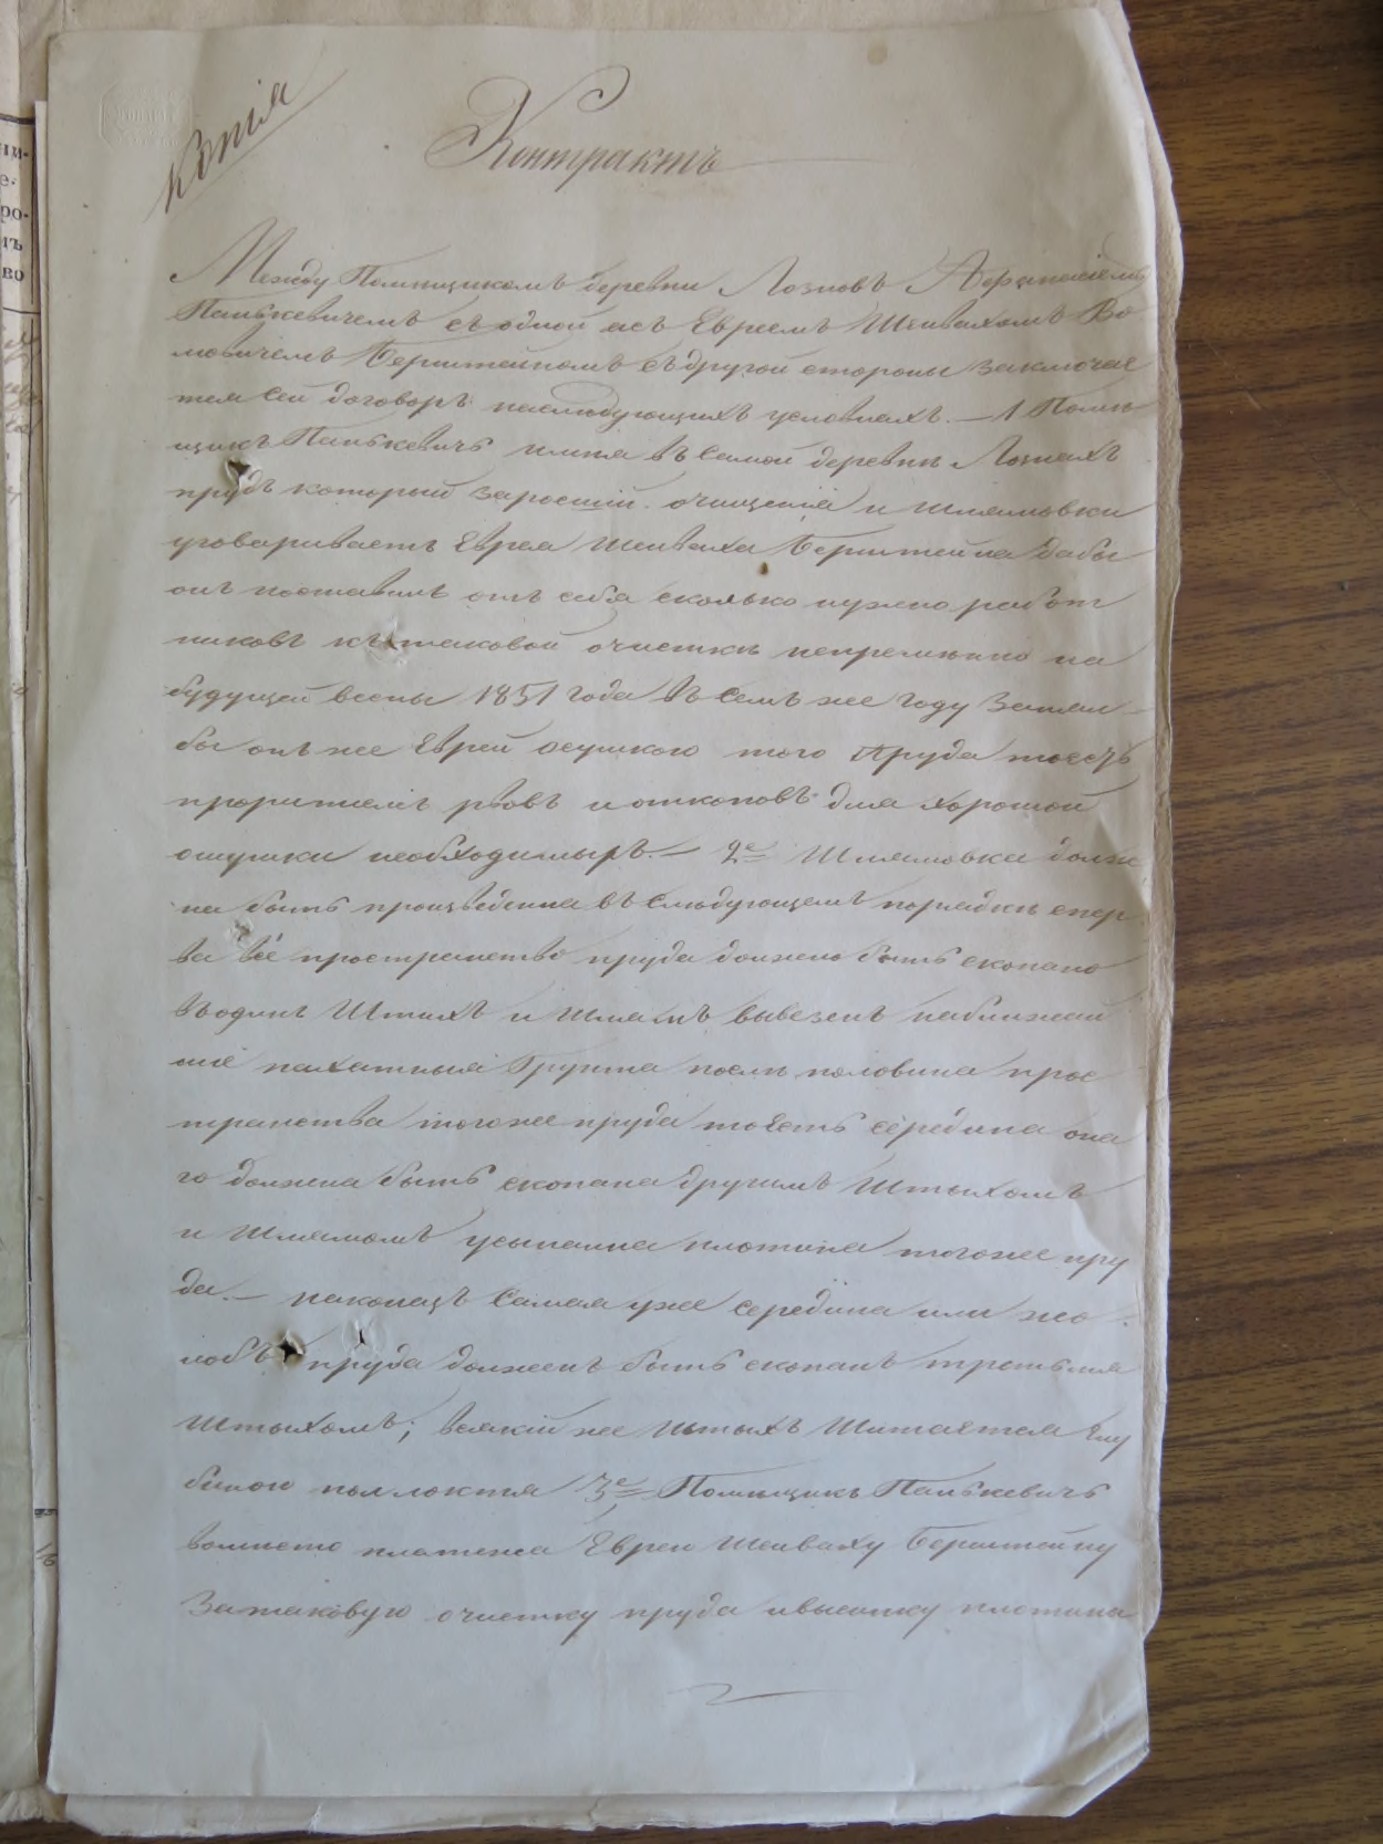 Копія
Контрактъ
Между Помѣщикомъ деревни Лозновъ Афанасіемъ
Панькевичемъ съ одной асъ Евреемъ Шейвахомъ Во
мовичемъ Бернштейномъ съ другой стороны заключае
тся сей договоръ наслѣдующихъ условіяхъ. — 1 Помѣ
щикъ Панькевичъ имѣя въ самой деревнѣ Лознахъ
прудъ который заросшій очищенія и шлямовки
уговариваетъ Еврея Шейваха Бернштейна дабы
онъ поставилъ отъ себя сколько нужно работ
никовъ къ таковой очистки непремѣнно на
будущей весны 1851 года въ семъ же году
бы онъ же Еврей осушкою того Пруда тоесть
прорытіемъ рвовъ и откоповъ для хорошой
осушки необходимыхъ. — 2е Шлямовка долж
на быть произведенна въ слѣдующемъ порядкѣ спер
ва всё пространство пруда должно быть скопано
въодинъ Штыхъ и шлямъ вывезенъ наближай
шіе пахатныя Грунта послѣ половина прос
транства тогоже пруда тоесть середина она
го должна быть скопана другимъ Штыхомъ
и Шлямомъ усыпанна плотина тогоже пру
да. — наконецъ самая уже середина или жо
лобъ пруда должепъ быть скопанъ третьимъ
Штыхомъ; всякій же штыхъ Шитается глу
биною поллоктя 3е Помѣщикъ Панькевичъ
вмѣсто платежа Еврею Шейваху Бернштейну
Затаковую очистку пруда ивысыпку плотины